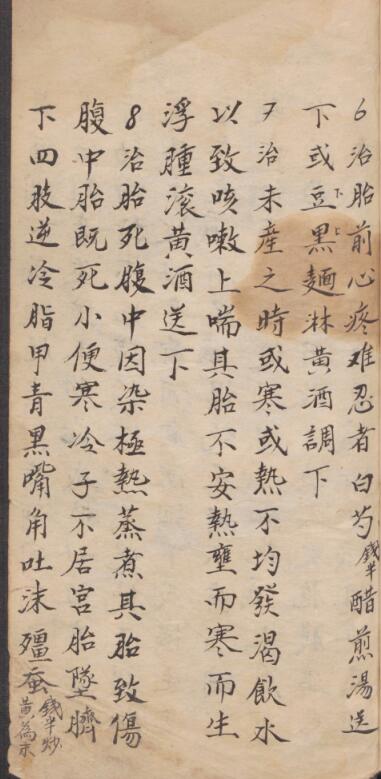 6治胎前心疼难忍者白芍錢半醋煎湯送
下或豆黑麵淋黄酒調下
7治未產之時或寒或熱不均發渴飲水
以致咳嗽上喘其胎不安熱壅而寒而生
浮腫滚黄酒送下
8治胎死腹中因染極熱蒸煮其胎致傷
腹中胎既死小便寒冷子不居宫胎墜臍
下四肢逆冷脂甲青黑嘴角吐沫殭蚕錢半炒黄為末